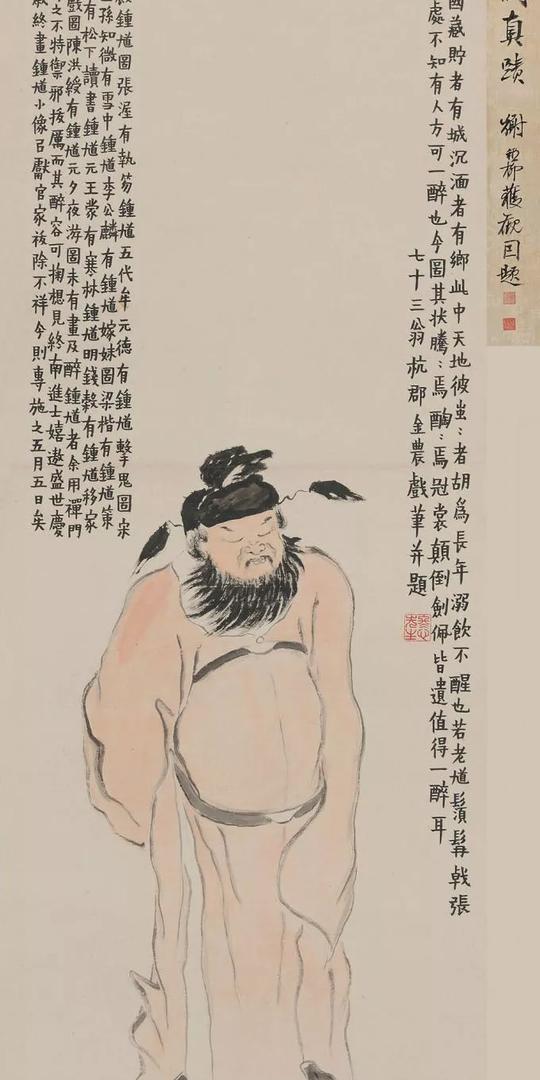 真蹟 謝稚柳獲觀因題
國藏貯者有城沉湎者有鄉此中天地彼蚩：者胡為長年溺飲不醒也若老馗鬚髯戟張
處不知有人方可一醉也今圖其狀騰：焉醄：焉冠裳顛倒劍佩皆遺值得一醉耳
七十三翁杭郡金農戲筆并題
鍾馗圖張渥有執笏鍾馗五代牟元德有鍾馗擊鬼圖宋
孫知微有雪中鍾馗李公麟有鍾馗嫁妹圖梁楷有鍾馗策
有松下讀書鍾馗元王蒙有寒林鍾馗明錢穀有鍾馗移家
戲圖陳洪綬有鍾馗元夕夜游圖未有畫及醉鍾馗者余用禪門
之不特禦邪拔厲而其醉容可掬想見終南進士嬉遨盛世慶
歲終畫鍾馗小像以獻官家祓除不祥今則專施之五月五日矣